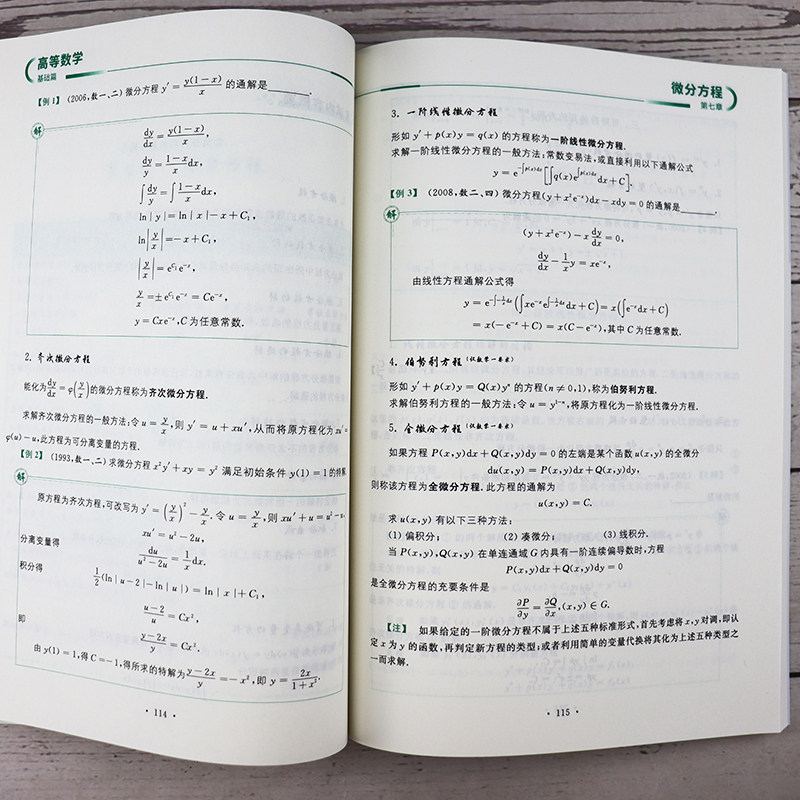 高等数学
基础篇
【例1】(2006,数一、二)微分方程 y′=y(1−x)/x 的通解是______.
解
dy/dx=y(1−x)/x,
dy/y=(1−x)/x dx,
∫dy/y=∫(1−x)/x dx,
ln|y|=ln|x|−x+C₁,
ln|y/x|=−x+C₁,
|y/x|=e^{C₁}e^{−x},
y/x=±e^{C₁}e^{−x}=Ce^{−x},
y=Cxe^{−x},C为任意常数.
2. 齐次微分方程
能化为dy/dx=φ(y/x)的微分方程称为齐次微分方程.
求解齐次微分方程的一般方法:令u=y/x,则y′=u+xu′,从而将原方程化为xu′=
φ(u)−u,此方程为可分离变量的方程.
【例2】(1993,数一、二)求微分方程x²y′+xy=y²满足初始条件y(1)=1的特解.
解
原方程为齐次方程,可改写为y′=(y/x)²−y/x.令u=y/x,则xu′+u=u²−u,
xu′=u²−2u,
分离变量得
du/(u²−2u)=1/x dx,
积分得
1/2(ln|u−2|−ln|u|)=ln|x|+C₁,
即
(u−2)/u=Cx²,
(y−2x)/y=Cx².
由y(1)=1,得C=−1,得所求的特解为(y−2x)/y=−x²,即y=2x/(1+x²).
• 114 •
微分方程
第七章
3. 一阶线性微分方程
形如y′+p(x)y=q(x)的方程称为一阶线性微分方程.
求解一阶线性微分方程的一般方法:常数变易法,或直接利用以下通解公式
y=e^{−∫p(x)dx}[∫q(x)e^{∫p(x)dx}dx+C].
【例3】(2008,数二、四)微分方程(y+x²e^{−x})dx−xdy=0的通解是______.
解
(y+x²e^{−x})−x dy/dx=0,
dy/dx−1/x y=xe^{−x},
由线性方程通解公式得
y=e^{−∫−1/x dx}(∫xe^{−x}e^{∫−1/x dx}dx+C)=x(∫e^{−x}dx+C)
=x(−e^{−x}+C)=x(C−e^{−x}),其中C为任意常数.
4. 伯努利方程(仅数学一要求)
形如y′+p(x)y=Q(x)yⁿ的方程(n≠0,1),称为伯努利方程.
求解伯努利方程的一般方法:令u=y^{1−n},将原方程化为一阶线性微分方程.
5. 全微分方程(仅数学一要求)
如果方程P(x,y)dx+Q(x,y)dy=0的左端是某个函数u(x,y)的全微分
du(x,y)=P(x,y)dx+Q(x,y)dy,
则称该方程为全微分方程.此方程的通解为
u(x,y)=C.
求u(x,y)有以下三种方法:
(1)偏积分; (2)凑微分; (3)线积分.
当P(x,y),Q(x,y)在单连通域G内具有一阶连续偏导数时,方程
P(x,y)dx+Q(x,y)dy=0
是全微分方程的充要条件是
∂P/∂y=∂Q/∂x,(x,y)∈G.
【注】 如果给定的一阶微分方程不属于上述五种标准形式,首先考虑将x,y对调,即认
定x为y的函数,再判定新方程的类型;或者利用简单的变量代换将其化为上述五种类型之
一而求解.
• 115 •